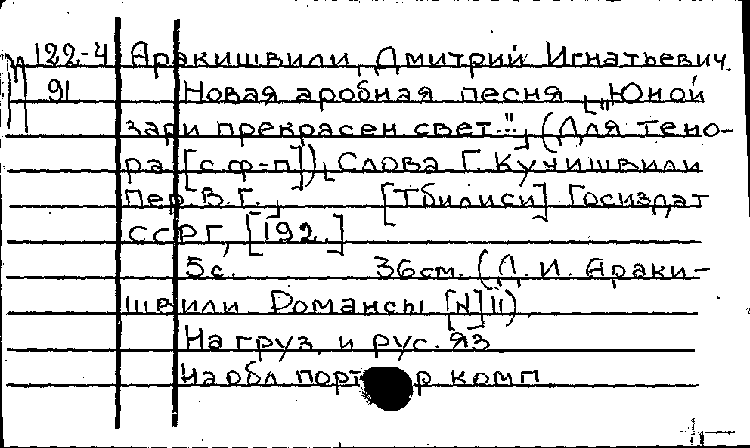 122-4 Аракишвили, Дмитрий Игнатьевич.
91 Новая аробная песня „Юной
зари прекрасен свет..." (Для тено-
ра [с ф-п]) Слова Г. Кучишвили
Пер. В. Г. [Тбилиси] Госиздат
ССРГ, [192.]
5 с. 36 см. (Д. И. Араки-
швили Романсы [N] 11)
На груз. и рус. яз
На обл порт р комп